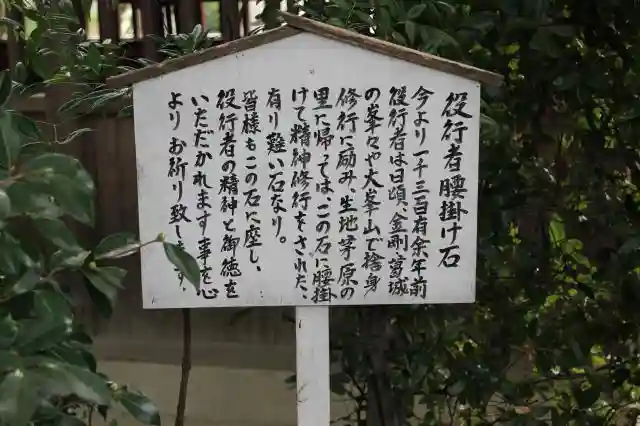 役行者腰掛け石
今より一千三百有余年前
役行者は日頃、金剛、葛城
の峯々や大峯山で捨身
修行に励み、生地茅原の
里に帰っては、この石に腰掛
けて精神修行をされた、
有り難い石なり。
皆様もこの石に座し、
役行者の精神と御徳を
いただかれます事を心
よりお祈り致します。